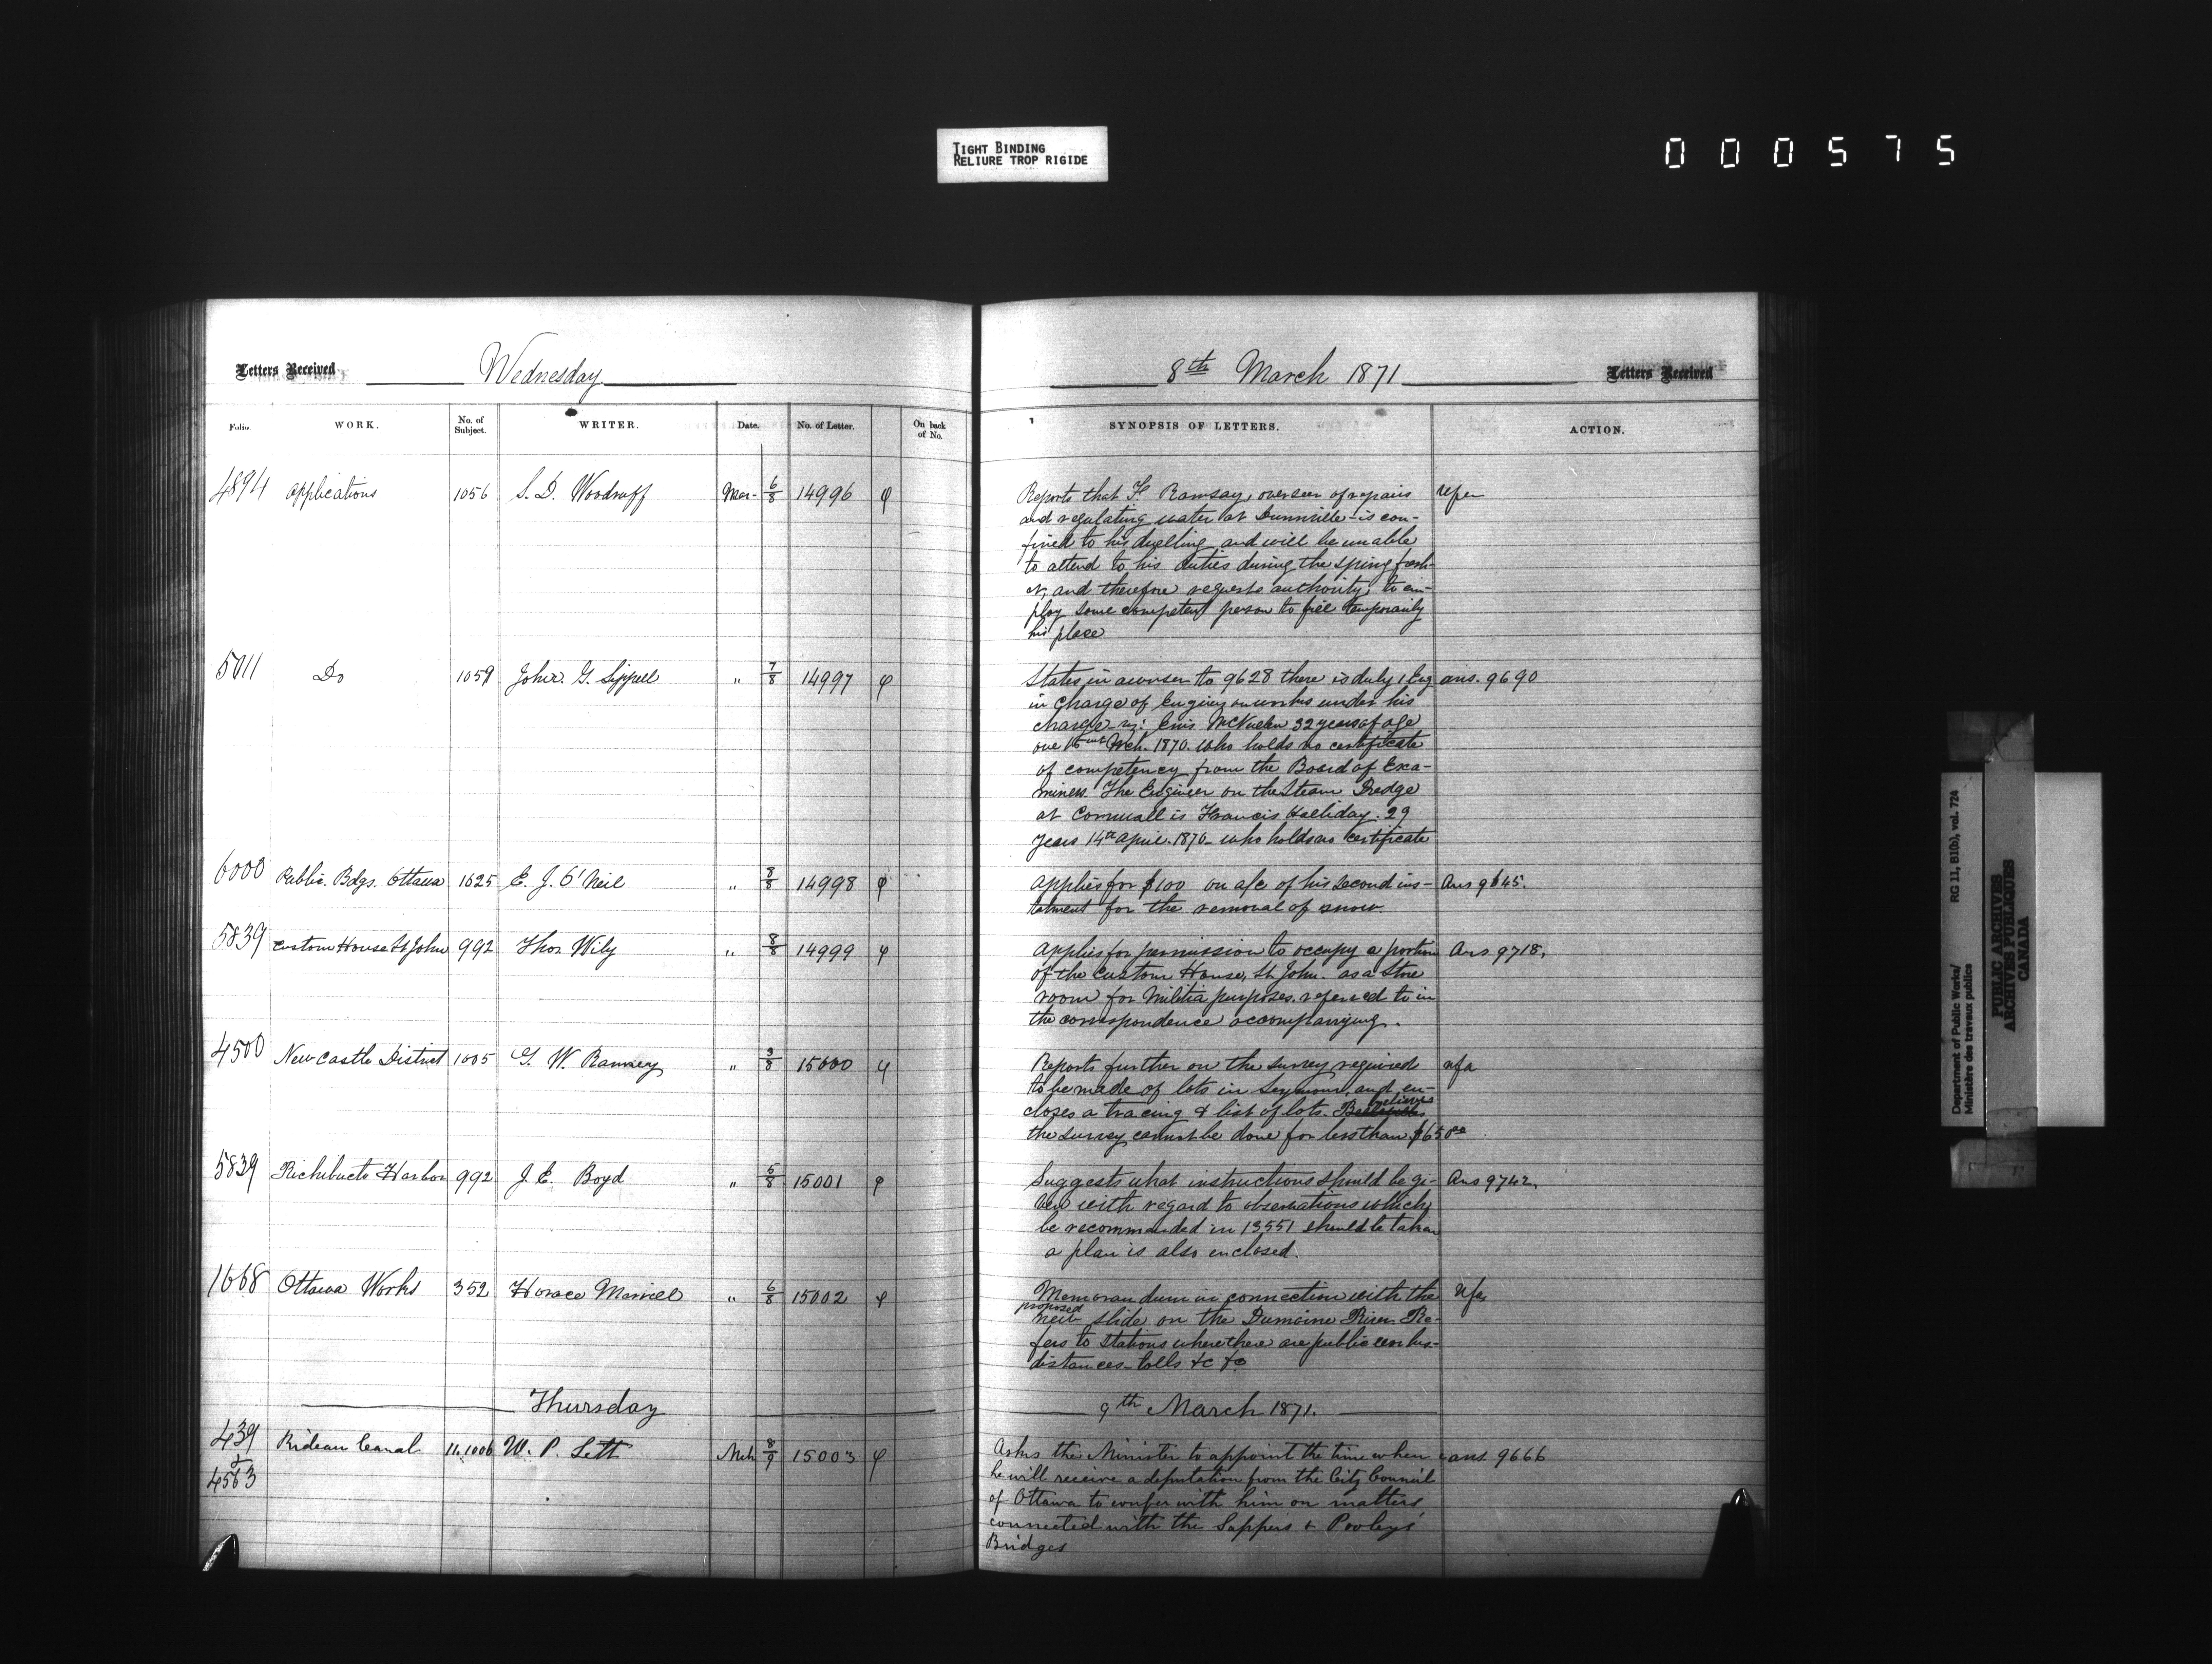 TIGHT BINDING
RELIURE TROP RIGIDE
000575
Letters Received Wednesday
8th March 1871 Letters Received
Folio. WORK. No. of Subject. WRITER. Date. No. of Letter. On back of No.
SYNOPSIS OF LETTERS. ACTION.
4894 Applications 1056 S. D. Woodruff Mar- 6/8 14996
Reports that F. Ramsay, overseer of repairs
and regulating water at Dunnville - is con-
fined to his dwelling and will be unable
to attend to his duties during the spring fresh-
et, and therefore requests authority to em-
ploy some competent person to fill temporarily
his place
5011 Do 1059 John G. Sippell " 7/8 14997
States in answer to 9628 there is only 1 Eng ans. 9690
in charge of Engines on works under his
charge viz: McCuen 32 years of age
Mch. 1870. who holds no certificate
of competency from the Board of Exa-
miners. The Engineer on the Steam Dredge
at Cornwall is Francis Halliday. 29
years 14th April. 1870 - who holds no certificate
6000 Public. Bdgs. Ottawa 1625 E. J. O'Neil " 8/8 14998
Applies for $100 on a/c of his second ins- Ans 9645.
talment for the removal of snow.
5839 Custom House St John 992 Thos Wily " 8/8 14999
Applies for permission to occupy a portion Ans 9718.
of the Custom House, St. John. as a Store
room for Militia purposes. referred to in
the correspondence accompanying.
4500 Newcastle District 1005 G. W. Ranney " 3/8 15000
Reports further on the survey required
to be made of lots in Seymour, and en-
closes a tracing & list of lots. believes
the survey cannot be done for less than $650.00
5839 Richibucto Harbor 992 J. E. Boyd " 5/8 15001
Suggests what instructions should be gi- Ans 9742.
ven with regard to observations which
he recommended in 13551 should be taken
a plan is also enclosed.
1668 Ottawa Works 352 Horace Merrill " 6/8 15002
Memorandum in connection with the
proposed
new slide on the Dumoine River. Re-
fers to Stations where there are public works-
distances - tolls &c &c
Thursday
9th March 1871.
439 & 4563 Rideau Canal 16,1006 W. P. Lett Mch 8/9 15003
Asks the Minister to appoint the time when ans. 9666
he will receive a deputation from the City Council
of Ottawa to confer with him on matters
connected with the Sappers & Pooleys'
Bridges
Department of Public Works/
Ministère des travaux publics
RG 11, B1(b), vol. 724
PUBLIC ARCHIVES
ARCHIVES PUBLIQUES
CANADA